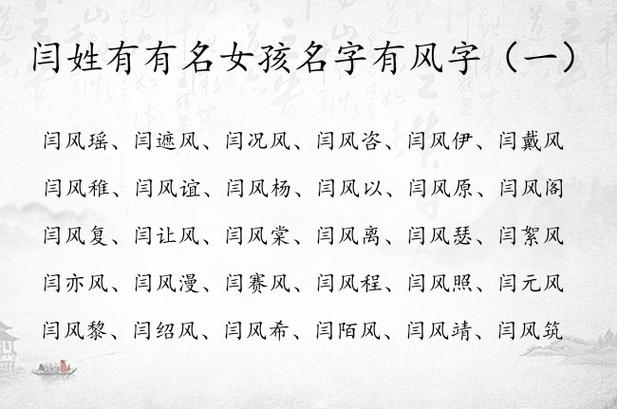 闫姓有有名女孩名字有风字（一）
闫风瑶、闫遮风、闫况风、闫风咨、闫风伊、闫戴风
闫风稚、闫风谊、闫风杨、闫风以、闫风原、闫风阁
闫风复、闫让风、闫风棠、闫风离、闫风瑟、闫絮风
闫亦风、闫风漫、闫赛风、闫风程、闫风照、闫元风
闫风黎、闫绍风、闫风希、闫陌风、闫风靖、闫风筑